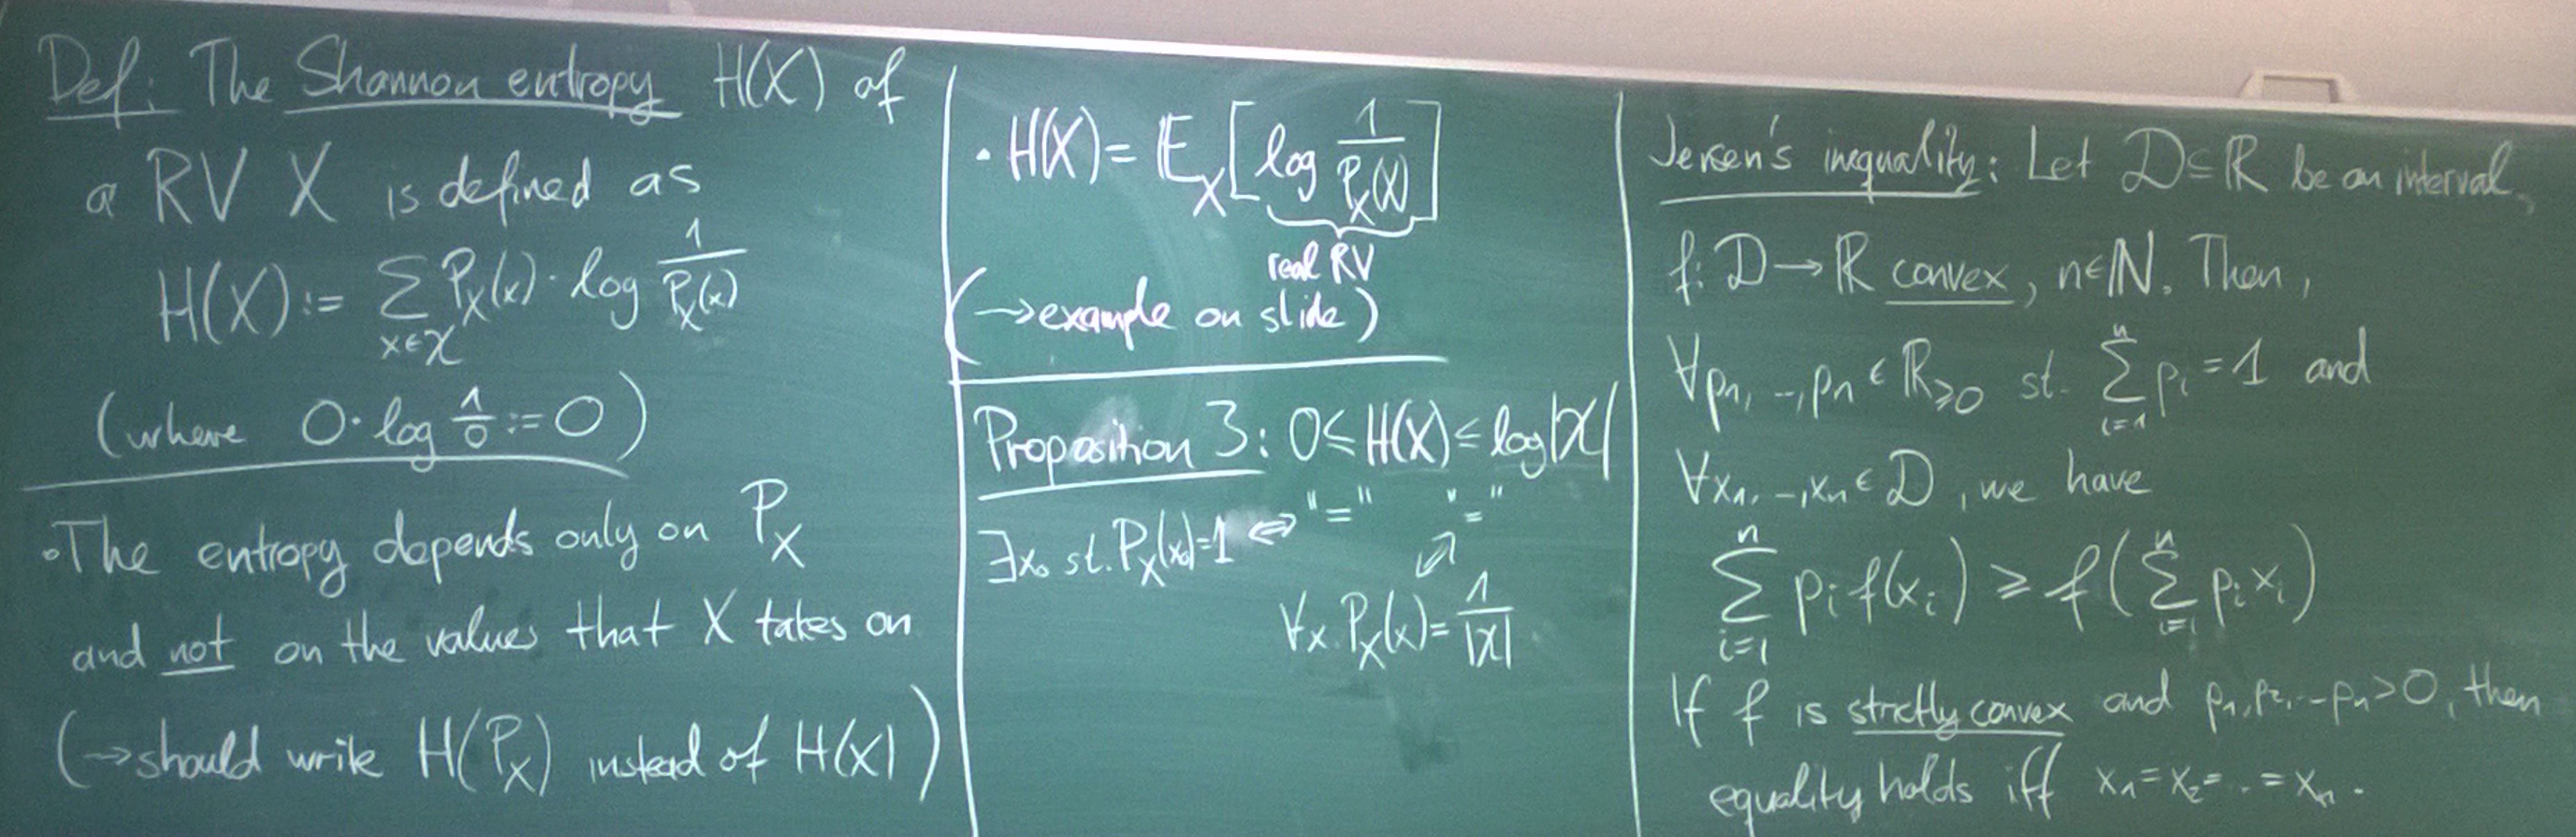 Def: The Shannon entropy H(X) of
a RV X is defined as
H(X) := ∑_{x∈𝒳} P_X(x) · log 1/P_X(x)
(where 0 · log 1/0 := 0)
• The entropy depends only on P_X
and not on the values that X takes on
(→ should write H(P_X) instead of H(X))
• H(X) = 𝔼_X [log 1/P_X(X)]
real RV
(→ example on slide)
Proposition 3: 0 ≤ H(X) ≤ log|𝒳|
"=" "="
∃x₀ st. P_X(x₀)=1 ⇔
⇕
∀x. P_X(x) = 1/|𝒳|
Jensen's inequality: Let 𝒟 ⊆ ℝ be an interval,
f: 𝒟 → ℝ convex, n∈ℕ. Then,
∀p₁, .., pₙ ∈ ℝ≥0 st. ∑_{i=1}^{n} pᵢ = 1 and
∀x₁, .., xₙ ∈ 𝒟, we have
∑_{i=1}^{n} pᵢ f(xᵢ) ≥ f(∑_{i=1}^{n} pᵢ xᵢ)
If f is strictly convex and p₁, p₂, .. pₙ > 0, then
equality holds iff x₁ = x₂ = .. = xₙ.